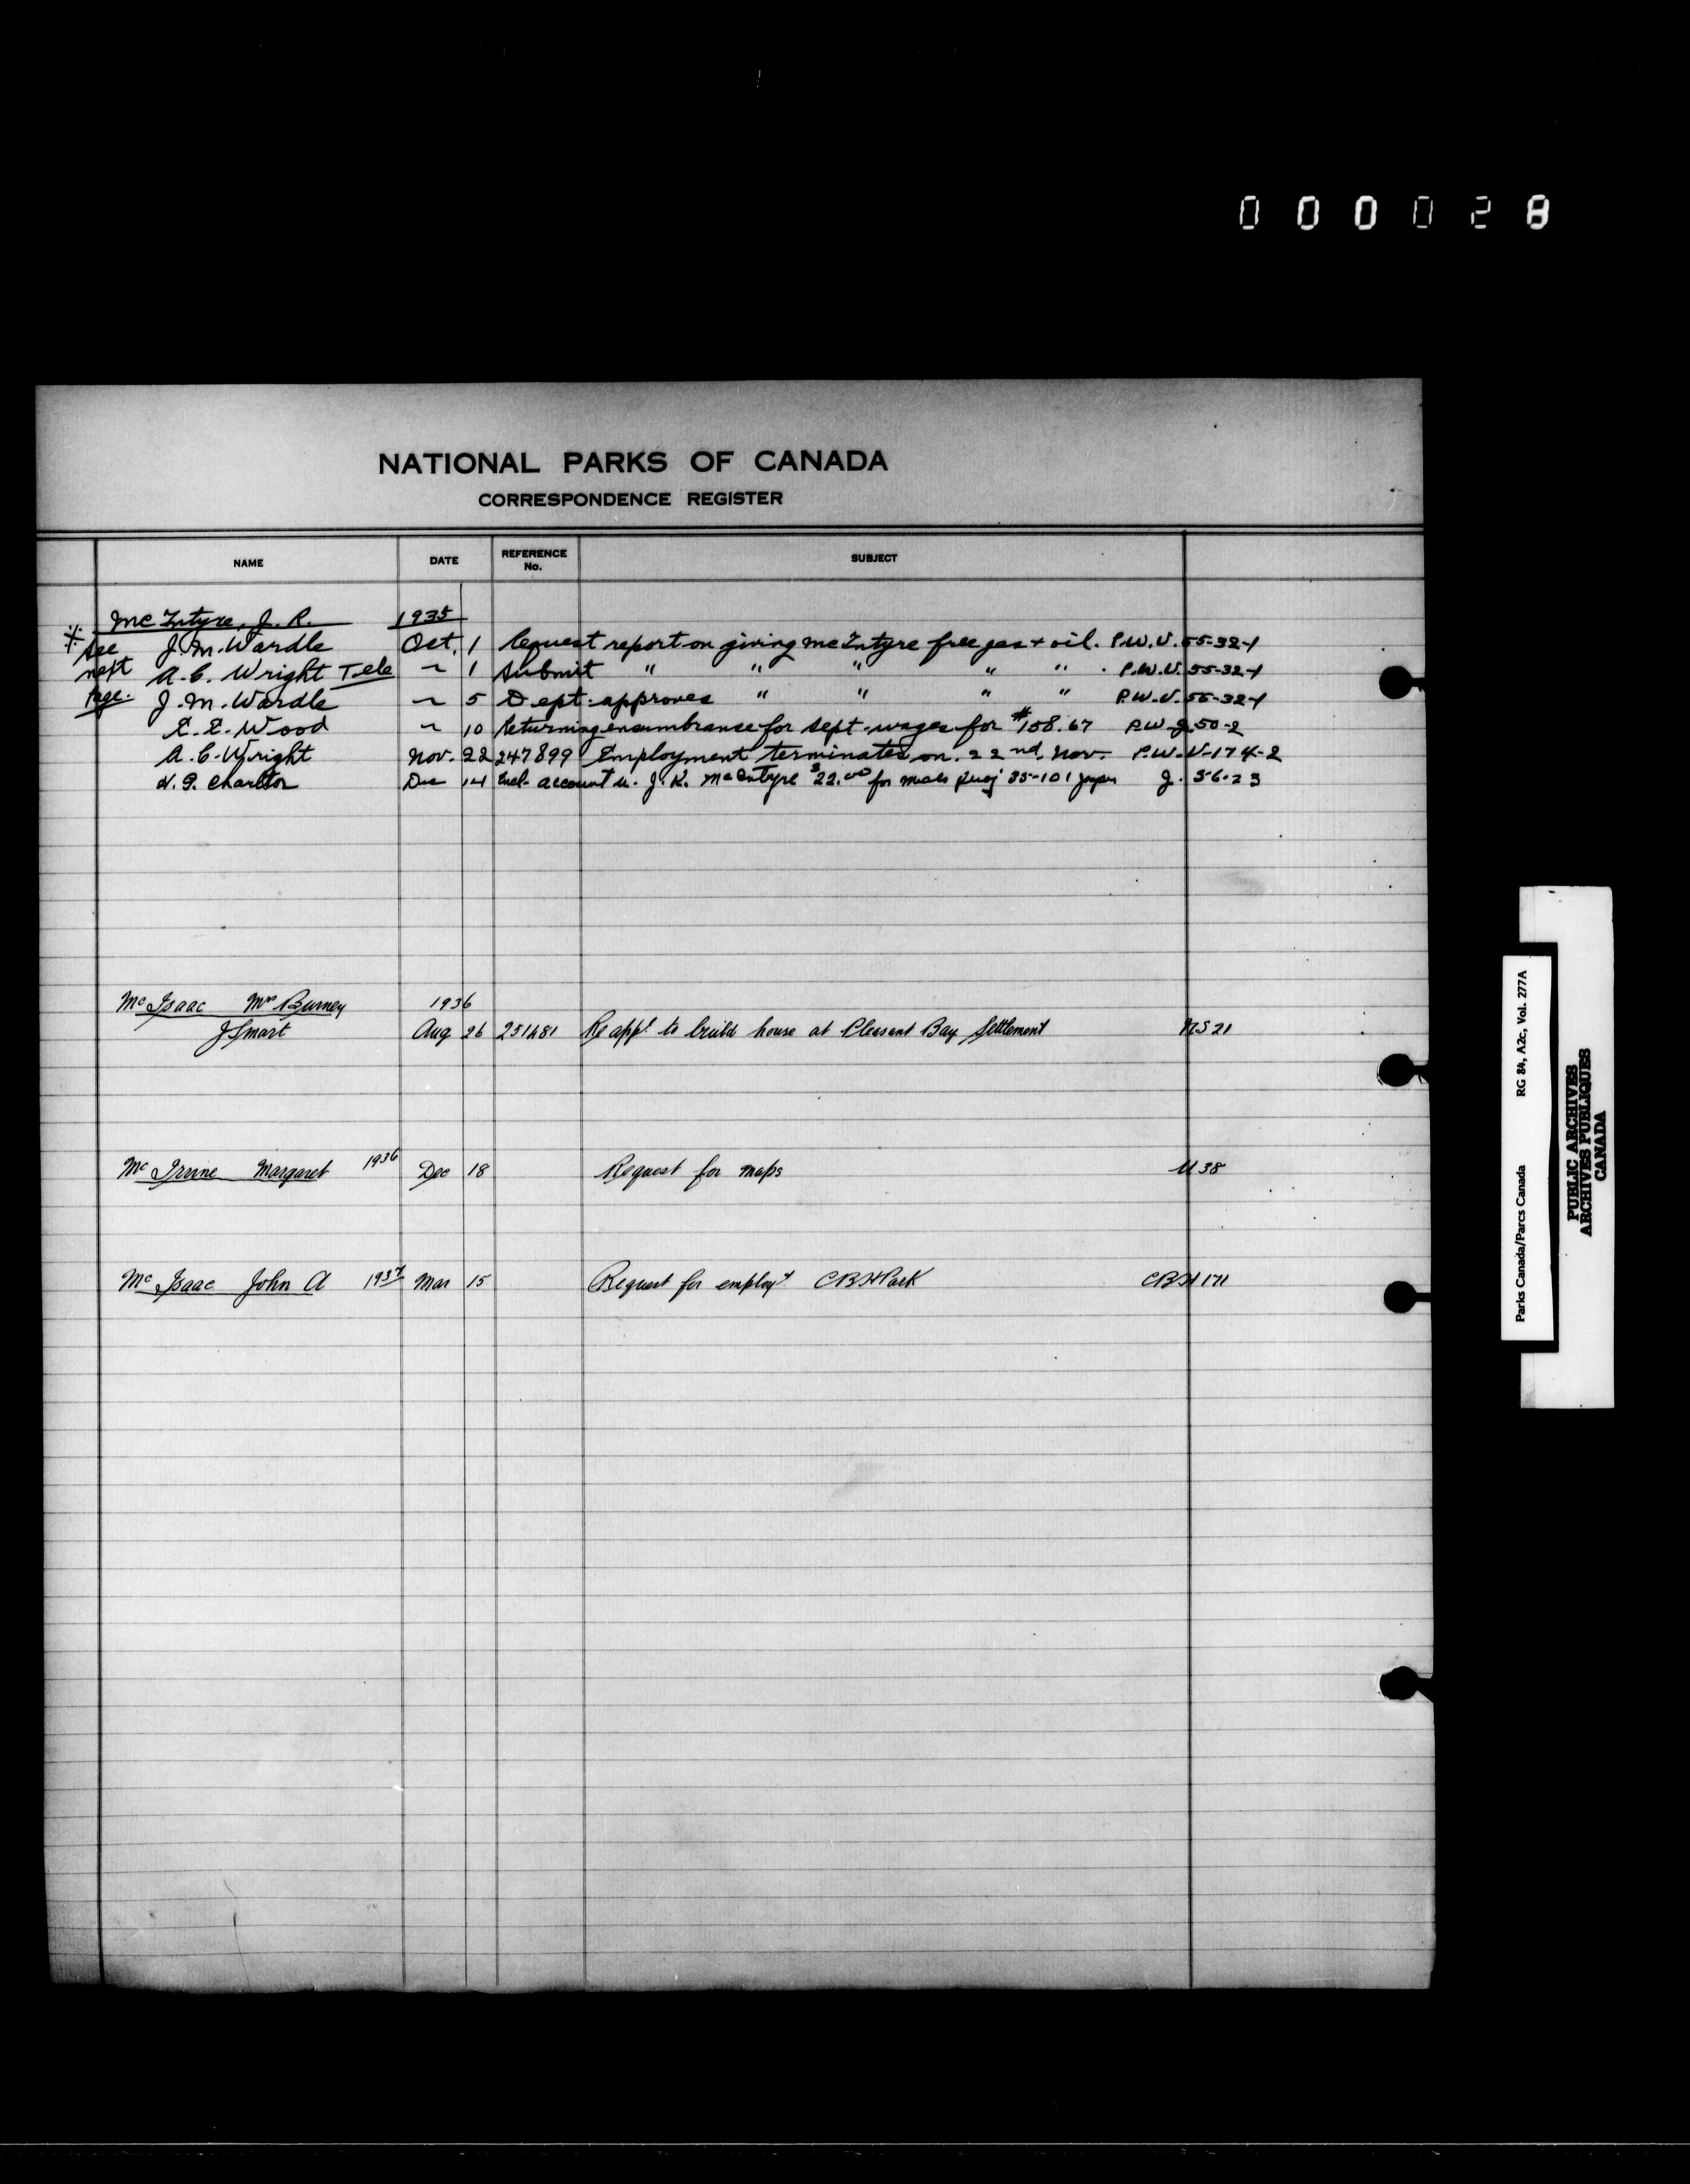 000028
NATIONAL PARKS OF CANADA
CORRESPONDENCE REGISTER
NAME DATE REFERENCE No. SUBJECT
McIntyre, J. R. 1935
※ See next page.
J. M. Wardle Oct. 1 Request report on giving McIntyre free gas + oil. P.W.U. 55-32-1
A. C. Wright Tele ~ 1 Submit " " " " " . P.W.U. 55-32-1
J. M. Wardle ~ 5 Dept. approves " " " " P.W.U. 55-32-1
E. E. Wood ~ 10 Returning encumbrance for Sept. wages for $158.67 P.W.J. 50-2
A. C. Wright Nov. 22 247899 Employment terminates on 22nd. Nov. P.W.U-174-2
H. G. Charlton Dec 14 Encl. account J. R. McIntyre $22.00 for meals proj 35-101 J. 56-23
Mc Isaac Mrs Burney 1936
J Smart Aug 26 251481 Re appl to build house at Pleasant Bay Settlement NS 21
Mc Irvine Margaret 1936 Dec 18 Request for maps U 38
Mc Isaac John A 1937 Mar 15 Request for employt CBH Park CBH 171
Parks Canada/Parcs Canada RG 84, A2c, Vol. 277A
PUBLIC ARCHIVES
ARCHIVES PUBLIQUES
CANADA